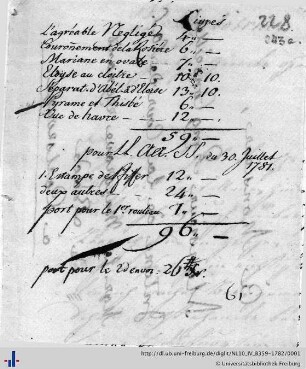 Livres
228
L'agréable Negligé 4,, —
Couronnement de la Rosiere 6,, —
Mariane en ovale 7,, —
Eloyse au cloitre — 10,, 10.
Separat. d'Abel. & d'Eloise 13,, 10.
Pyrame et Thisbé 6,, —
Vue de havre — 12,, —
59,, —
pour LL. AA. SS. du 30. Juillet
1781.
1. Estampe de 12,, —
deux autres — 24,, —
port pour le 1er rouleau 1,, —
96,, —
port pour le 2d envoi. 26
61
http://dl.ub.uni-freiburg.de/diglit/NL10_IV_8359-1782/0001
© Universitätsbibliothek Freiburg